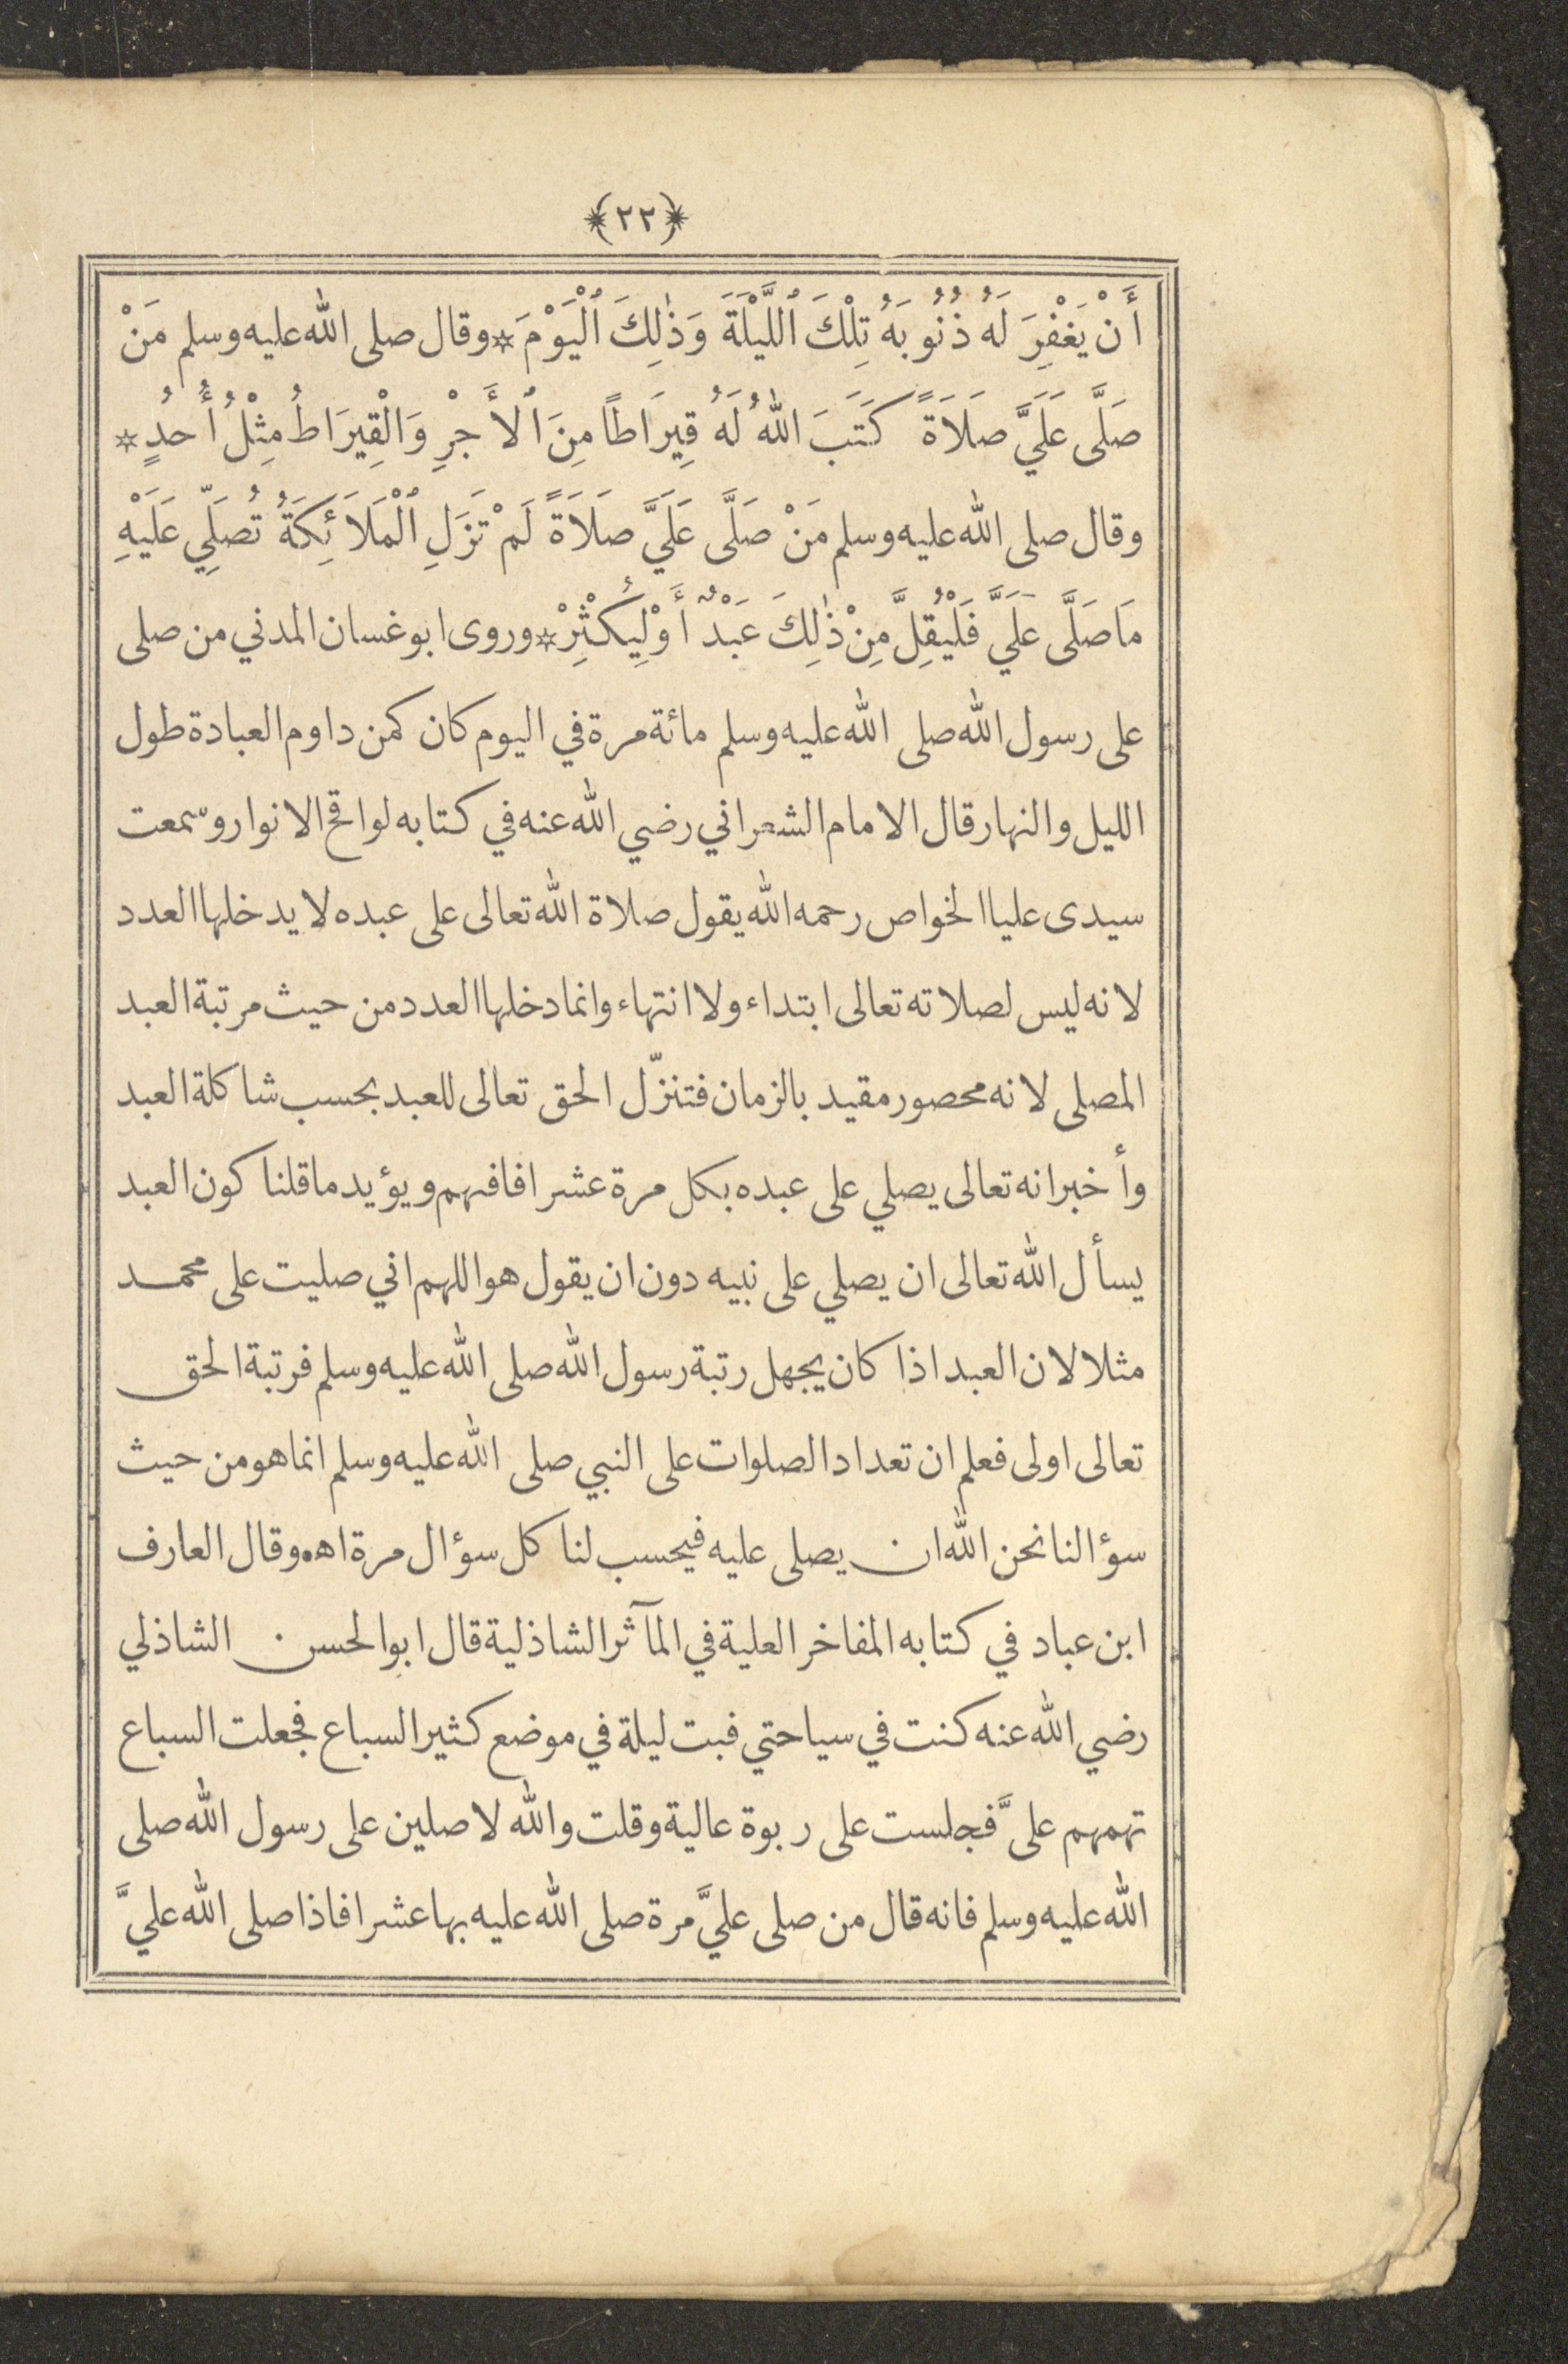 ﴿٢٢﴾
أَنْ يَغْفِرَ لَهُ ذُنُوبَهُ تِلْكَ ٱللَّيْلَةَ وَذٰلِكَ ٱلْيَوْمَ * وقال صلى الله عليه وسلم مَنْ
صَلَّى عَلَيَّ صَلَاةً كَتَبَ اللهُ لَهُ قِيرَاطًا مِنَ ٱلأَجْرِ وَالْقِيرَاطُ مِثْلُ أُحُدٍ *
وقال صلى الله عليه وسلم مَنْ صَلَّى عَلَيَّ صَلَاةً لَمْ تَزَلِ ٱلْمَلَائِكَةُ تُصَلِّي عَلَيْهِ
مَا صَلَّى عَلَيَّ فَلْيُقِلَّ مِنْ ذٰلِكَ عَبْدٌ أَوْ لِيُكْثِرْ * وروى ابو غسان المدني من صلى
على رسول الله صلى الله عليه وسلم مائة مرة في اليوم كان كمن داوم العبادة طول
الليل والنهار قال الامام الشعراني رضي الله عنه في كتابه لواقح الانوار وسمعت
سيدى عليا الخواص رحمه الله يقول صلاة الله تعالى على عبده لا يدخلها العدد
لانه ليس لصلاته تعالى ابتداء ولا انتهاء وانما دخلها العدد من حيث مرتبة العبد
المصلى لانه محصور مقيد بالزمان فتنزّل الحق تعالى للعبد بحسب شاكلة العبد
وأخبر انه تعالى يصلي على عبده بكل مرة عشرا فافهم ويؤيد ما قلنا كون العبد
يسأل الله تعالى ان يصلي على نبيه دون ان يقول هو اللهم اني صليت على محمد
مثلا لان العبد اذا كان يجهل رتبة رسول الله صلى الله عليه وسلم فرتبة الحق
تعالى اولى فعلم ان تعداد الصلوات على النبي صلى الله عليه وسلم انما هو من حيث
سؤالنا نحن الله ان يصلى عليه فيحسب لنا كل سؤال مرة اه‍ وقال العارف
ابن عباد في كتابه المفاخر العلية في المآثر الشاذلية قال ابو الحسن الشاذلي
رضي الله عنه كنت في سياحتي فبت ليلة في موضع كثير السباع فجعلت السباع
تهمهم علىَّ فجلست على ربوة عالية وقلت والله لاصلين على رسول الله صلى
الله عليه وسلم فانه قال من صلى عليَّ مرة صلى الله عليه بها عشرا فاذا صلى الله عليَّ